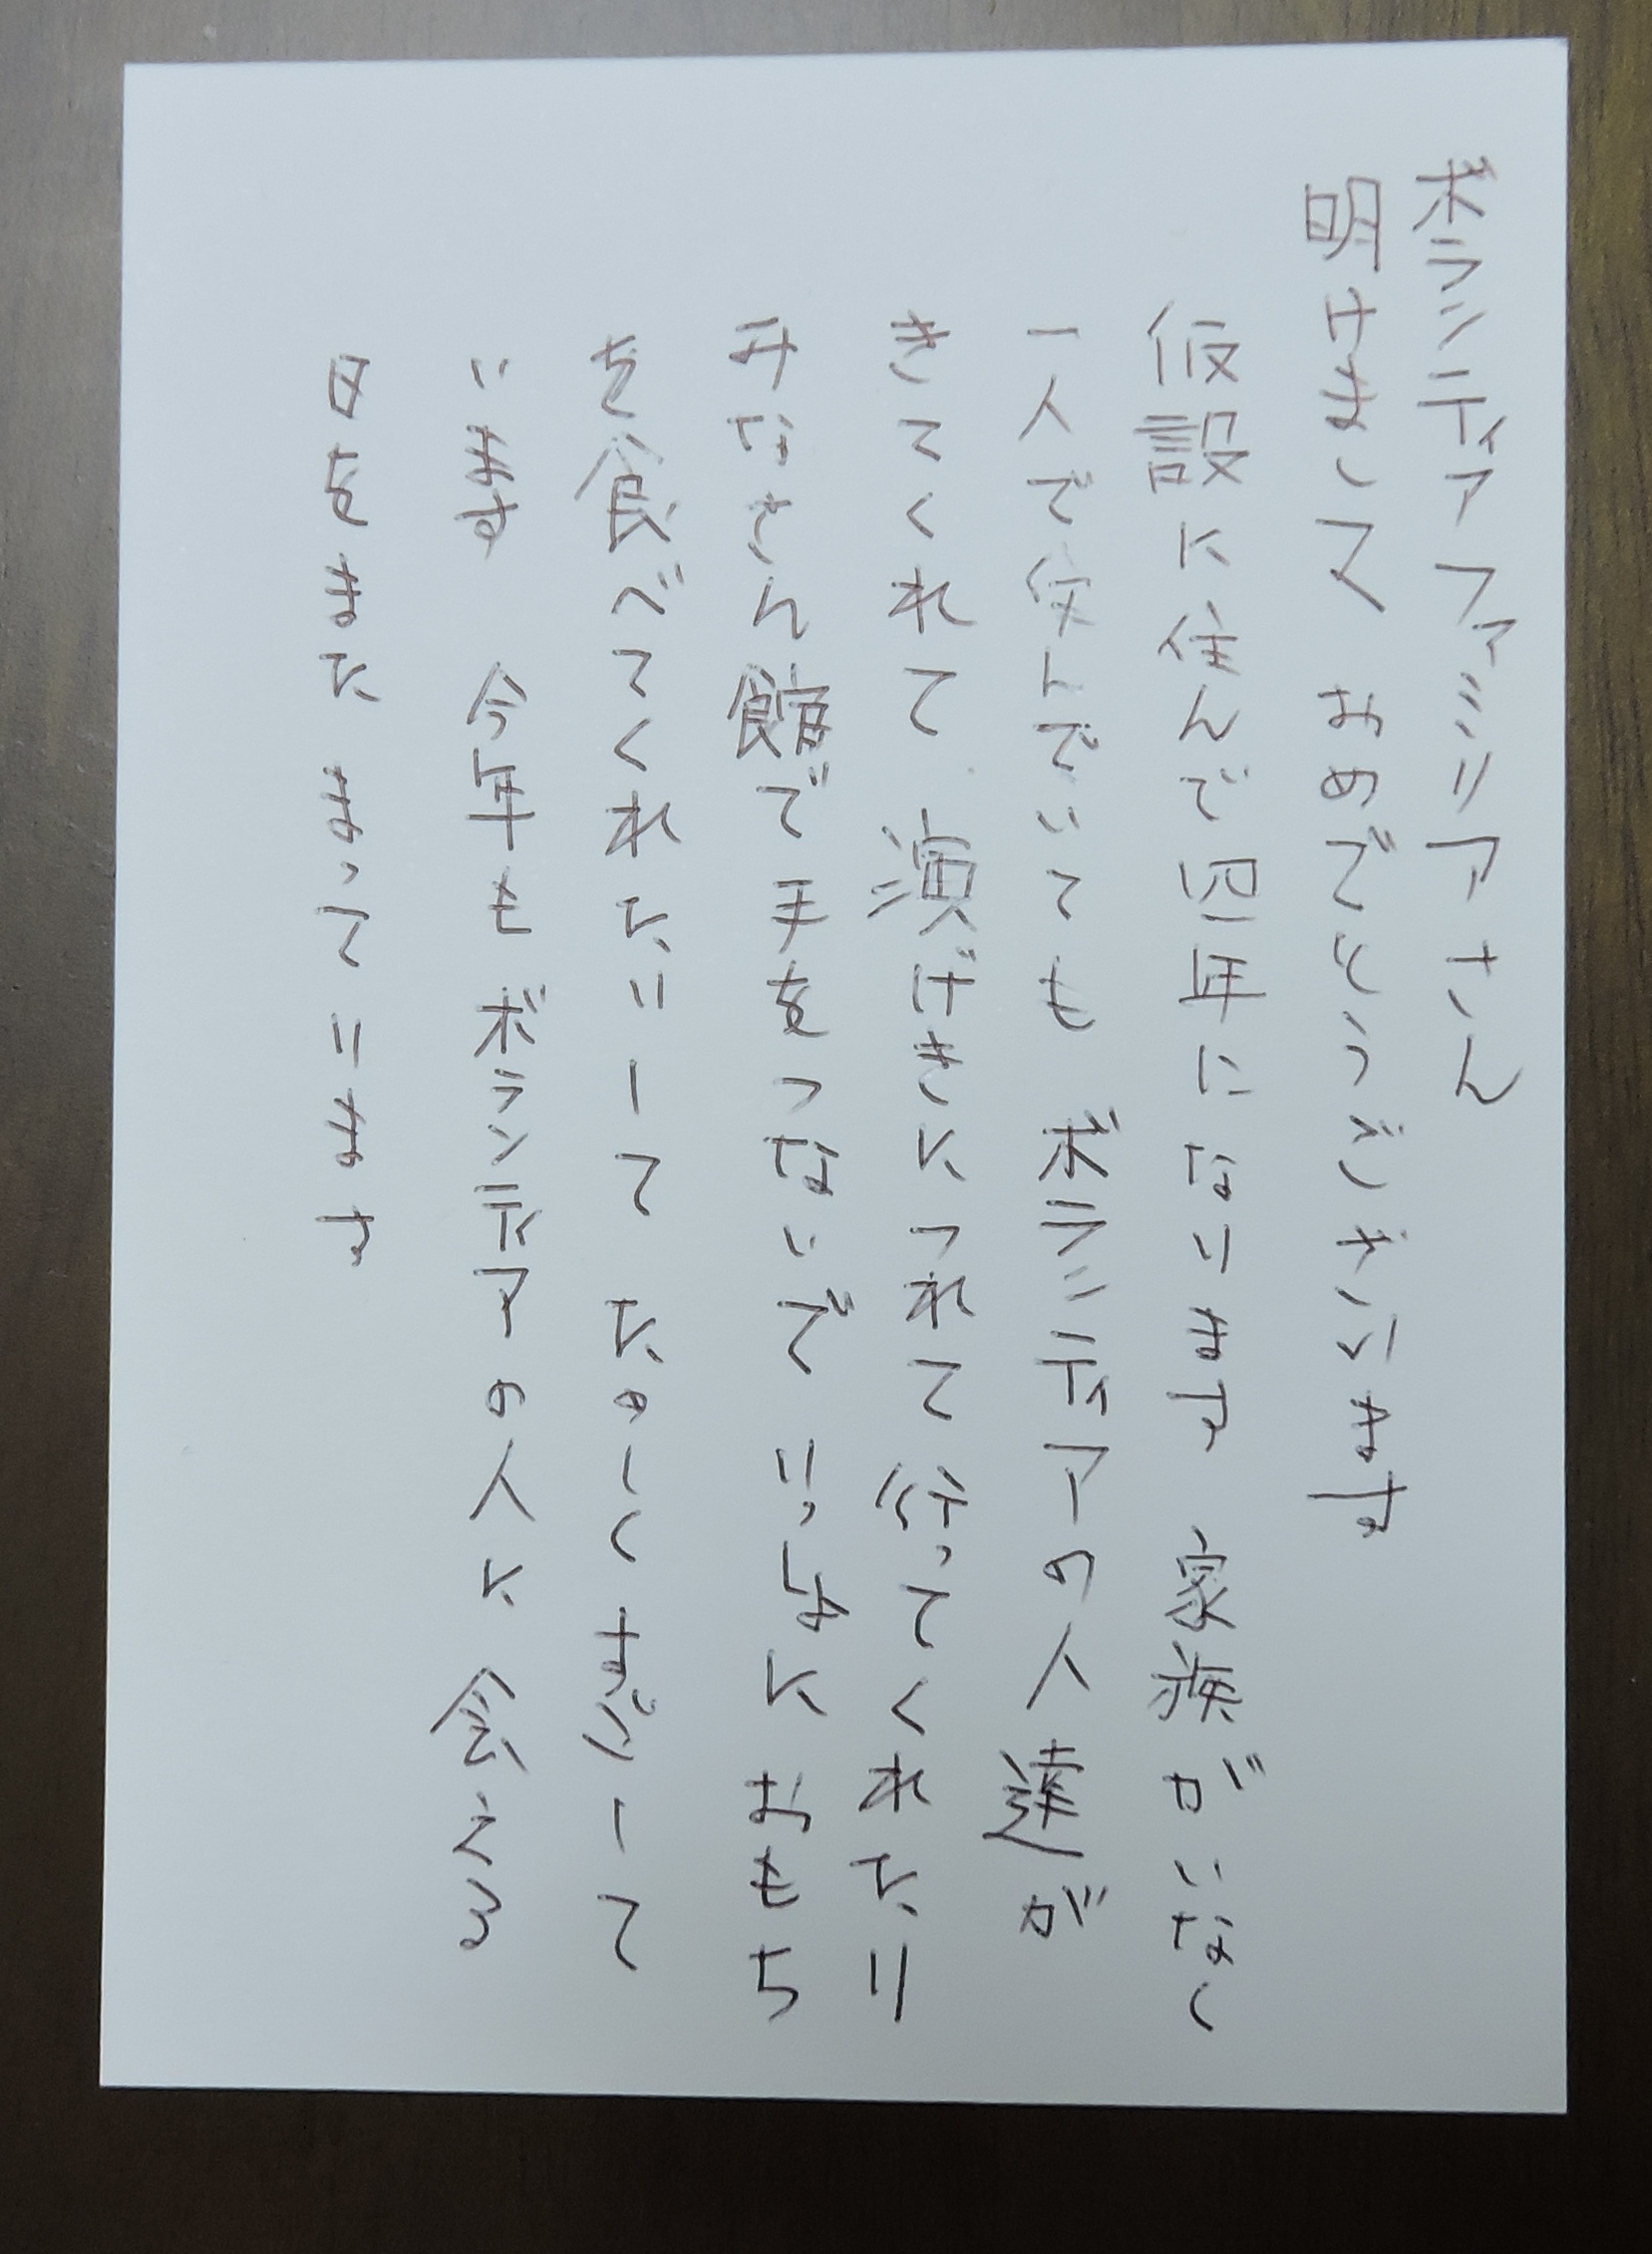 ボランティアファミリアさん
明けまして おめでとうございます
仮設に住んで四年になります 家族がいなく
一人で住んでいても ボランティアの人達が
きてくれて 演げきにつれて行ってくれたり
みなさん館で手をつないで いっしょに おもち
を食べてくれたりして たのしく すごして
います 今年も ボランティアの人に 会える
日をまた まっています